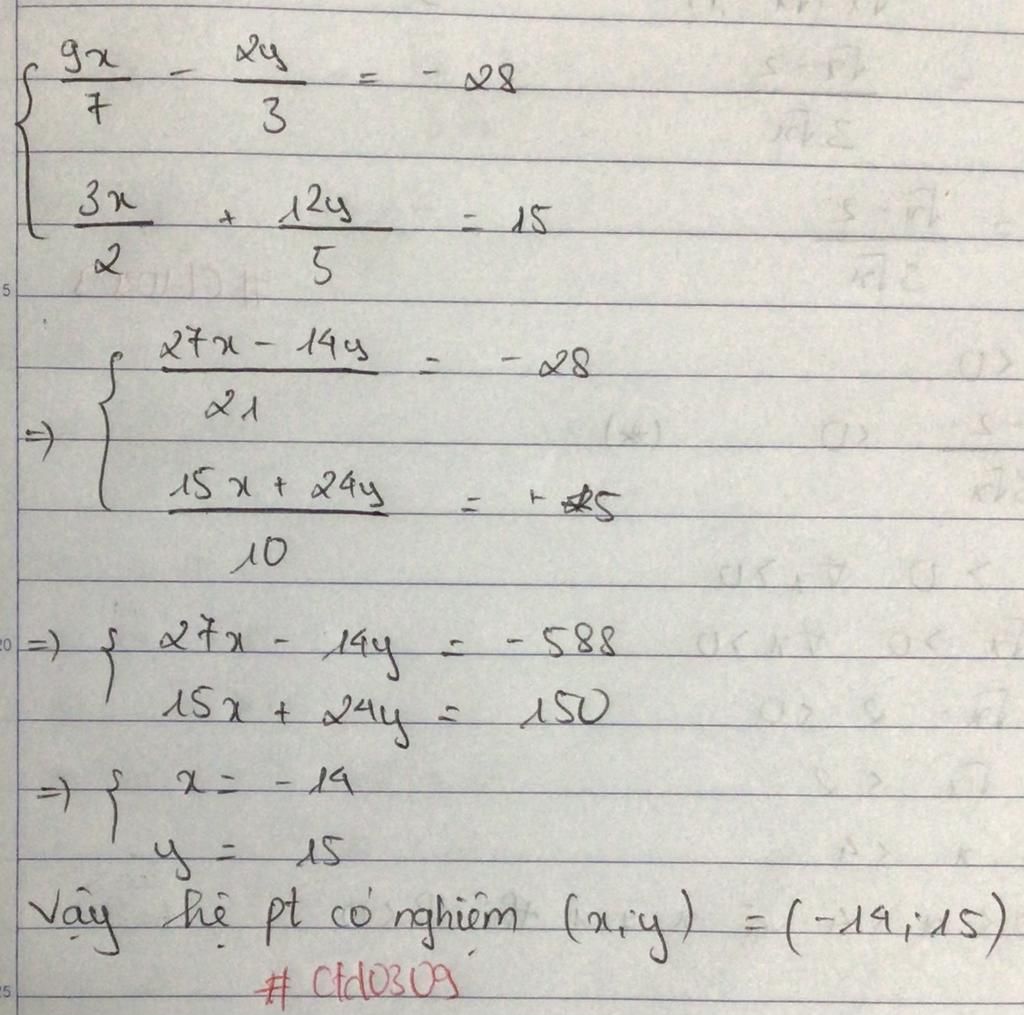 9x/7 - 2y/3 = - 28
3x/2 + 12y/5 = 15
=> { (27x - 14y)/21 = - 28
(15x + 24y)/10 = 15
=> { 27x - 14y = - 588
15x + 24y = 150
=> { x = - 14
y = 15
Vậy hệ pt có nghiệm (x;y) = (-14; 15)
# Ctd0309